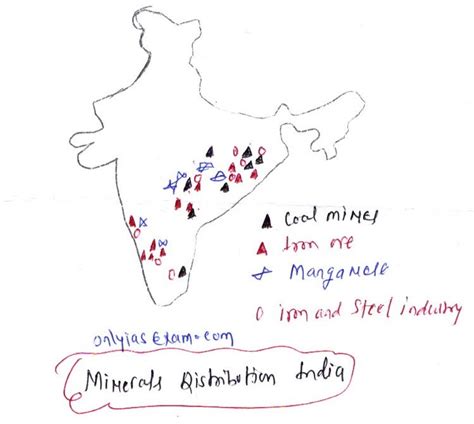 Coal mines
Iron ore
Manganese
iron and Steel industry
onlyiasExam.com
Minerals Distribution India